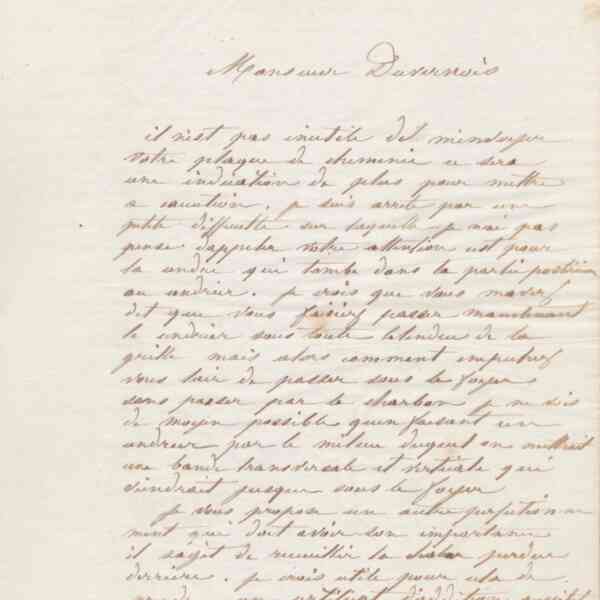 Monsieur Duvernois
il n'est pas inutile de m'envoyer
votre plaque de cheminée ce sera
une indication de plus pour mettre
a exécution. je suis arrêté par une
petite difficulté sur laquelle je n'ai pas
pensé d'appeler votre attention c'est pour
la cendre qui tombe dans la partie postérieure
au cendrier. je crois que vous m'avez
dit que vous faisiez passer maintenant
le cendrier sous toute l'etendue de la
grille mais alors comment empechez
vous l'air de passer sous le foyer
sans passer par le charbon je ne vois
de moyen possible qu'en faisant un
cendrier par le milieu duquel on mettrait
une bande transversale et verticale qui
viendrait jusque sous le foyer
je vous propose un autre perfectionne
ment qui doit avoir son importance
il sagit de recueillir la chaleur perdue
derrière. je crois utile pour cela de
un certificat d'addition